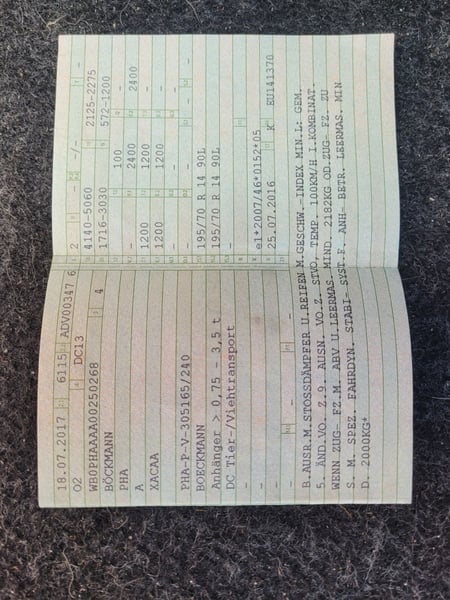 18.07.2017 6115 ADV00347 6
O2 DC13
WB0PHAAAA00250268 4
BÖCKMANN
PHA
A
XACAA
-
PHA-P-V-305165/240
BOECKMANN
Anhänger > 0,75 - 3,5 t
DC Tier-/Viehtransport
-
-
-
2 - -/- -
4140-5060 2125-2275
1716-3030 572-1200
- 100 -
- 2400 - 2400
1200 1200 -
1200 1200 -
- - -
- - - -
195/70 R 14 90L
195/70 R 14 90L
-
e1*2007/46*0152*05
25.07.2016 K EU141370
- -
B.AUSR.M.STOSSDÄMPFER U.REIFEN M.GESCHW.-INDEX MIN.L: GEM.
5. ÄND.VO. Z.9. AUSN. VO.Z. STVO, TEMP. 100KM/H I.KOMBINAT.
WENN ZUG- FZ.M. ABV U.LEERMAS. MIND. 2182KG OD.ZUG- FZ. ZU
S. M. SPEZ. FAHRDYN. STABI- SYST.F. ANH- BETR. LEERMAS. MIN
D. 2000KG*